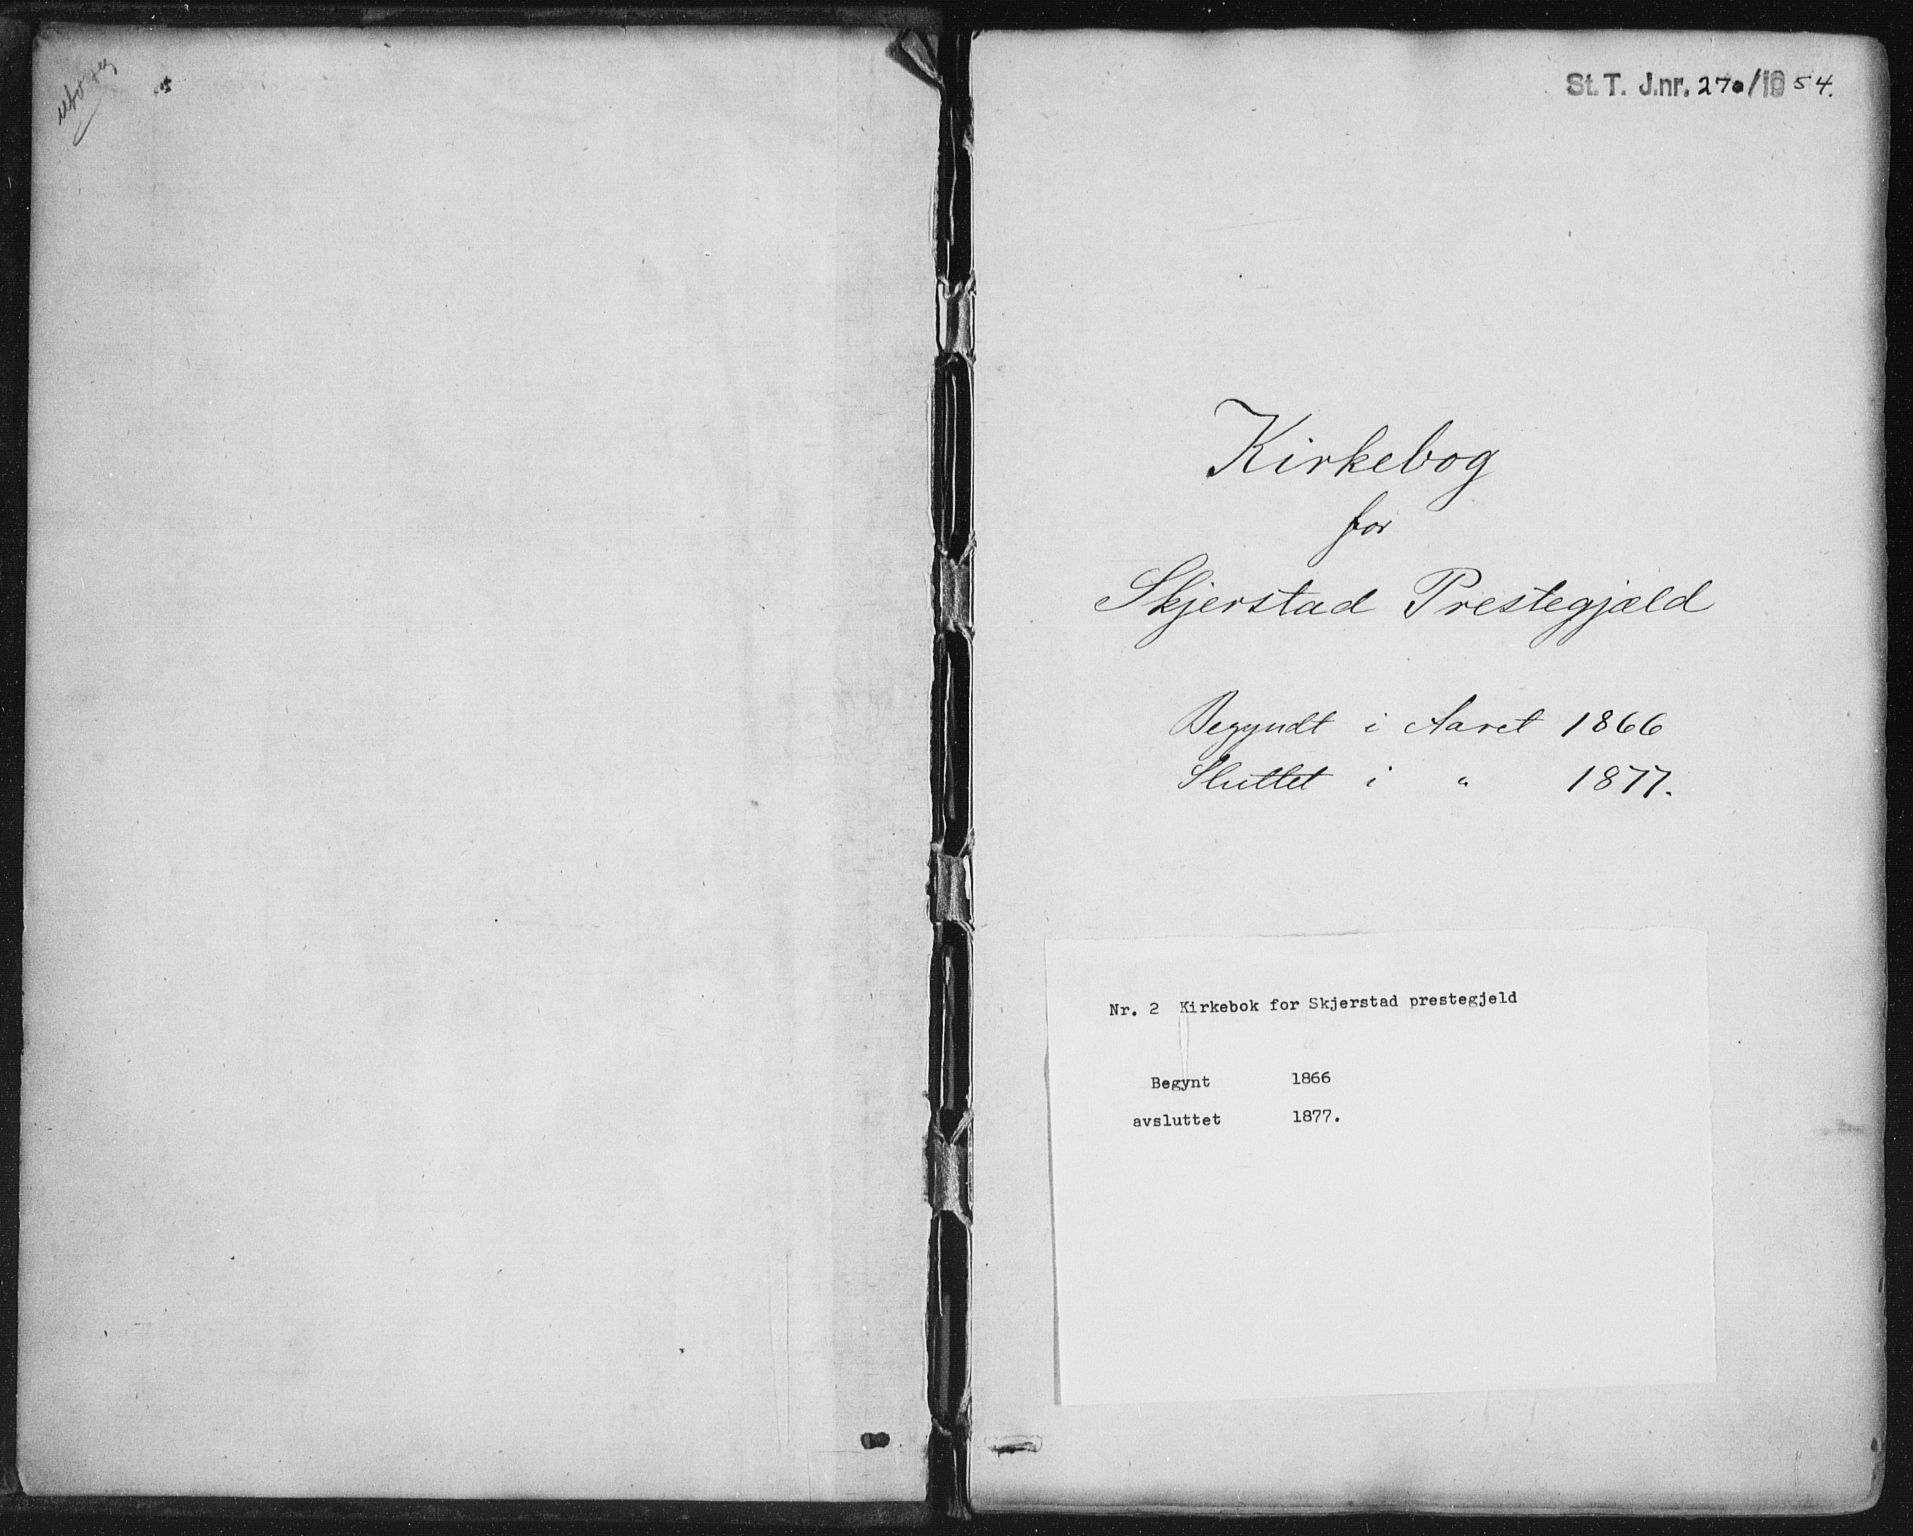 St. T. J.nr. 270/1954.
Kirkebog
for
Skjerstad Prestegjæld
Begyndt i Aaret 1866
Sluttet i " 1877.
Nr. 2 Kirkebok for Skjerstad prestegjeld
Begynt 1866
avsluttet 1877.